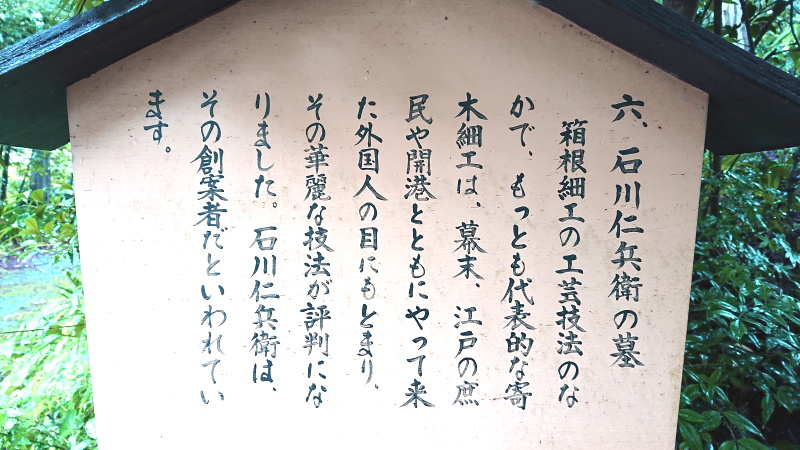 六、石川仁兵衛の墓
箱根細工の工芸技法のな
かで、もっとも代表的な寄
木細工は、幕末、江戸の庶
民や開港とともにやって来
た外国人の目にもとまり、
その華麗な技法が評判にな
りました。石川仁兵衛は、
その創案者だといわれてい
ます。